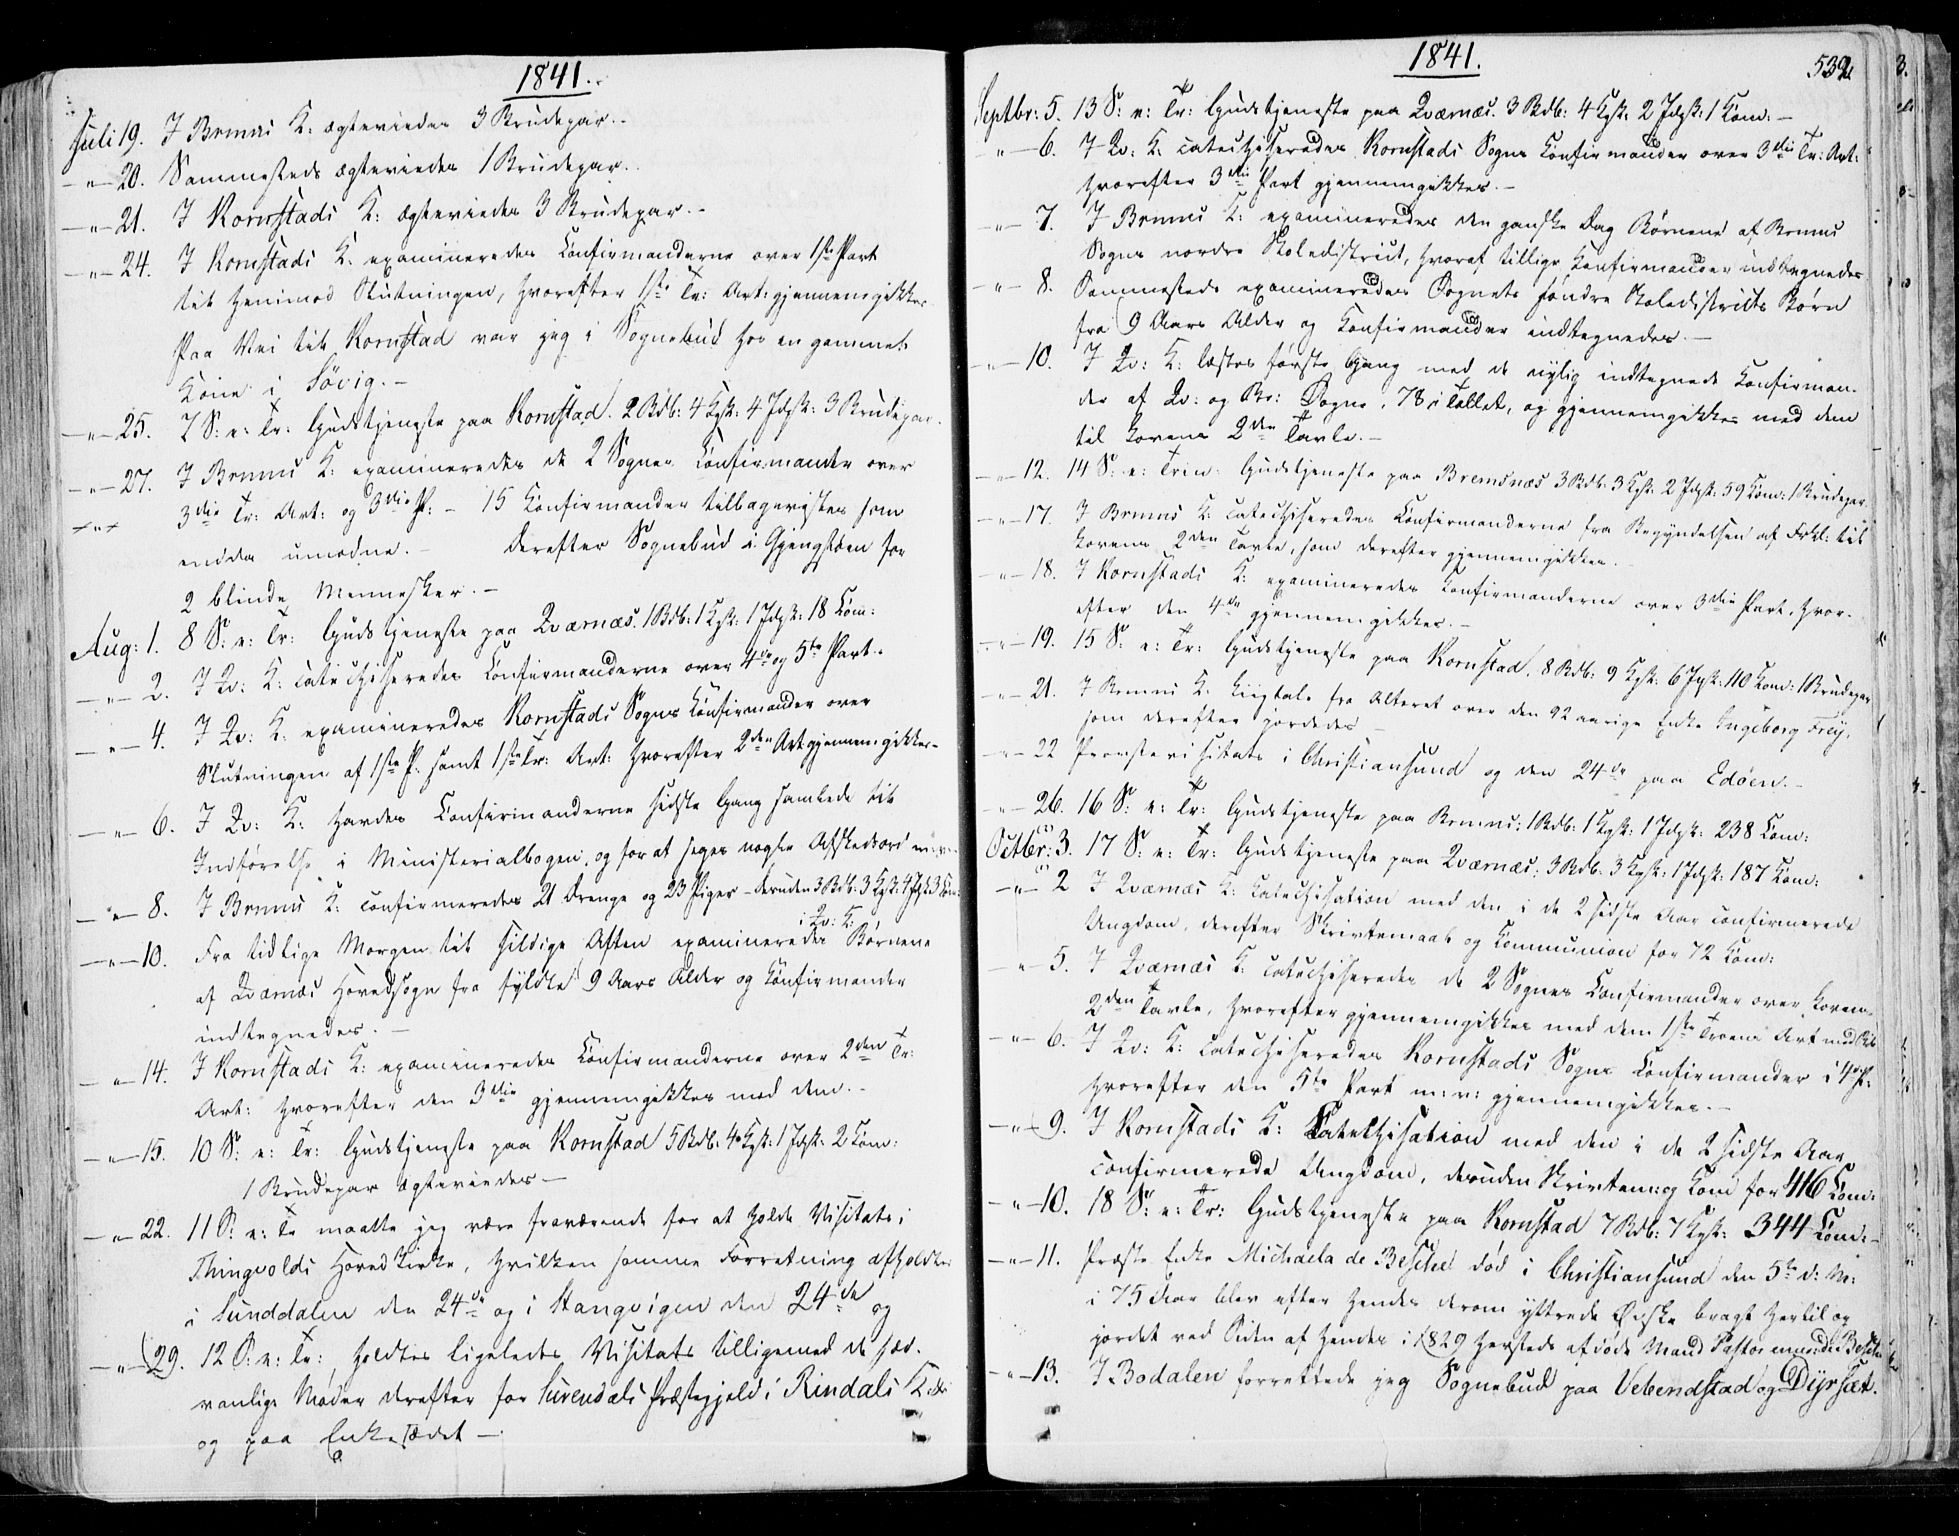 1841.
Juli 19. I Bremsnæs K: ægteviedes 3 Brudepar.
— " — 20. Sammesteds ægteviedes 1 Brudepar.
— " — 21. I Kornstads K: ægteviedes 3 Brudepar. –
— " — 24. I Kornstads K: examineredes Confirmanderne over 1ste Part
til henimod Slutningen, hvorefter 1ste Tr: Art: gjennemgikkes
Paa Vei til Kornstad var jeg i Sognebud hos en gammel
Kone i Søvig. –
— " — 25. 7 S: e: Tr: Gudstjeneste paa Kornstad. 2 Bdb: 4 Kgk: 4 Jdgk: 3 Brudepar.
— " — 27. I Bremsnæs K: examineredes de 2 Sognes Confirmander over
3die Tr: Art: og 3die P: – 15 Confirmander tilbagevistes som
endda umodne. – Derefter Sognebud i Gjengstøen for
2 blinde Mennesker. –
Aug: 1. 8 S: e: Tr: Gudstjeneste paa Qværnæs. 1 Bdb: 1 Kgk: 1 Jdgk: 18 Com:
— " — 2. I Qv: K: catechiseredes Confirmanderne over 4de og 5te Part.
— " — 4. I Qv: K: examineredes Kornstads Sogns Confirmander over
Slutningen af 1ste P. samt 1ste Tr: Art: hvorefter 2den Art gjennemgikkes –
— " — 6. I Qv: K: havdes Confirmanderne sidste Gang samlede til
Indførelse i Ministerialbogen, og for at siges nogle Afskedsord
— " — 8. I Bremsnæs K: confirmeredes 21 Drenge og 23 Piger – desuden 3 Bdb: 3 Kgk: 4 Jdgk 3 Com:
i Qv: K:
— " — 10. Fra tidlige Morgen til sildige Aften examineredes Børnene
af Qværnæs Hovedsogn fra fyldte 9 Aars Alder og Confirmander
indtegnedes. –
— " — 14. I Kornstads K: examineredes Confirmanderne over 2den Tr:
Art: hvorefter den 3die gjennemgikkes med dem. –
— " — 15. 10 S: e: Tr: Gudstjeneste paa Kornstad 5 Bdb: 4 Kgk: 1 Jdgk: 2 Com:
1 Brudepar ægteviedes –
— " — 22. 11 S: e: Tr maatte jeg være fraværende for at holde Visitats i
Thingvolds Hovedkirke, hvilken samme Forretning afholdtes
i Sunddalen den 24de og i Stangvigen den 24de og
— " — 29. 12 S: e: Tr: holdtes ligeledes Visitats tilligemed de sæd-
vanlige Møder derefter for Surendals Præstegjeld i Rindals K:
og paa Enkesædet –
1841.
532
Septbr: 5. 13 S: e: Tr: Gudstjeneste paa Qværnæs. 3 Bdb: 4 Kgk: 2 Jdgk: 1 Com: –
— " — 6. I Qv: K: catechiseredes Kornstads Sogns Confirmander over 3die Tr: Art:
hvorefter 3die Part gjennemgikkes. –
— " — 7. I Bremsnæs K: examineredes den ganske Dag Børnene af Bremsnæs
Sogns nordre Skoledistrict, hvoraf tillige Confirmander indtegnedes
— " — 8. Sammesteds examineredes Sognets søndre Skoledistricts Børn
fra 9 Aars Alder og Confirmander indtegnedes. –
— " — 10. I Qv: K: læstes første Gang med de nylig indtegnede Confirman-
der af Qv: og Br: Sogne, 78 i Tallet, og gjennemgikkes med dem
til Lovens 2den Tavle. –
— " — 12. 14 S: e: Trin: Gudstjeneste paa Bremsnæs 3 Bdb: 3 Kgk: 2 Jdgk: 59 Com: 1 Brudepar
— " — 17. I Bremsnæs K: catechiseredes Confirmanderne fra Begyndelsen af Frkl: til
Lovens 2den Tavle, som derefter gjennemgikkes. –
— " — 18. I Kornstads K: examineredes Confirmanderne over 3die Part, hvor-
efter den 4de gjennemgikkes. –
— " — 19. 15 S: e: Tr: Gudstjeneste paa Kornstad. 8 Bdb: 9 Kgk: 6 Jgk: 110 Com: 1 Brudepar
— " — 21. I Bremsnæs K: Liigtale fra Alteret over den 92 aarige Enke Ingeborg Frey,
som derefter jordedes –
— " — 22 Provstevisitats i Christiansund og den 24de paa Edøen. –
— " — 26. 16 S: e: Tr: Gudstjeneste paa Bremsnæs: 1 Bdb: 1 Kgk: 1 Jdgk: 238 Com:
Octbr: 3. 17 S: e: Tr: Gudstjeneste paa Qværnæs: 3 Bdb: 3 Kgk: 1 Jdgk: 187 Com:
— " — 2 I Qværnæs K: Catechisation med den i de 2 sidste Aar confirmerede
Ungdom, derefter Skriftemaal og Communion for 72 Com:
— " — 5. I Qværnæs K: catechiseredes de 2 Sognes Confirmander over Lovens
2den Tavle, hvorefter gjennemgikkes med dem 1ste Troens Art
— " — 6. I Qv: K: catechiseredes Kornstads Sogns Confirmander i 4de P:
hvorefter den 5te Part m: v: gjennemgikkes. –
— " — 9. I Kornstads K: Catechisation med den i de 2 sidste Aar
confirmerede Ungdom, desuden Skriftem: og Com for 416 Com:
— " — 10. 18 S: e: Tr: Gudstjeneste paa Kornstad 7 Bdb: 7 Kgk: 344 Com: –
— " — 11. Præste Enke Michaela de Besche død i Christiansund den 5te d: M:
i 75 Aar blev efter hendes derom yttrede Ønske bragt hertil og
jordet ved Siden af hendes i 1829 hersteds afdøde Mand Pastor de Besche
— " — 13. I Bodalen forrettede jeg Sognebud paa Vebendstad og Dyrsæt.